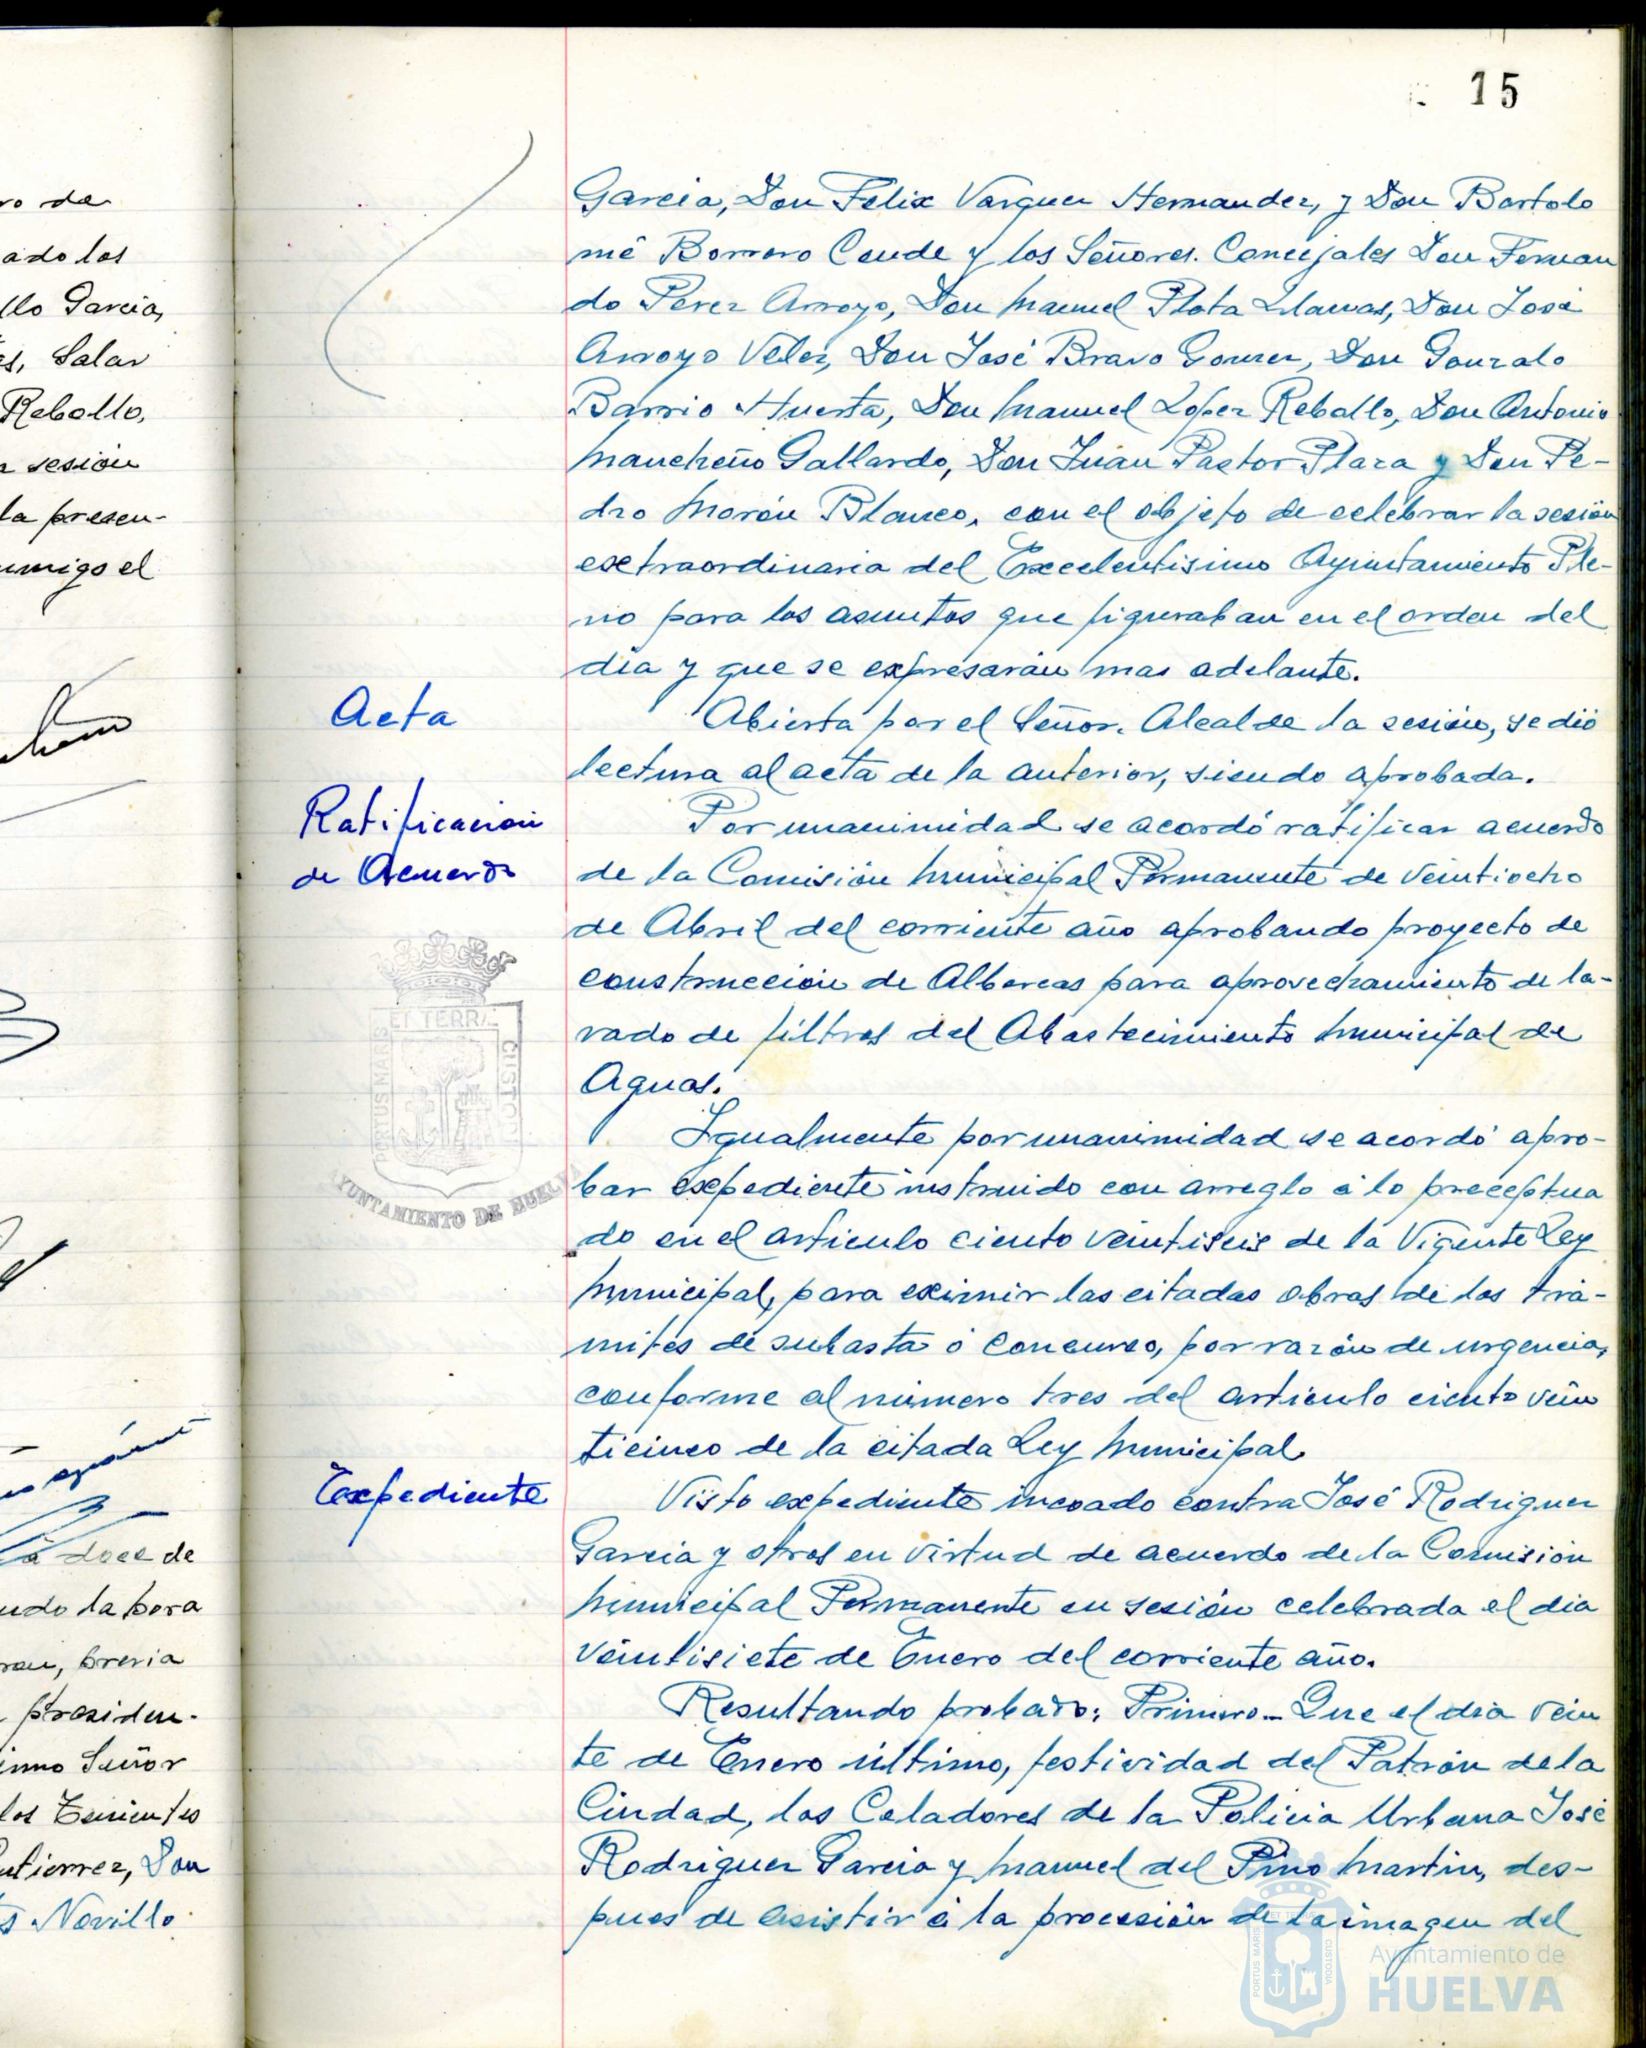 15
ro de
ado los
llo Garcia,
es, Salar
Rebollo,
sesión
la presen-
nmigo el
à doce de
ndo la hora
ran, previa
presiden-
imo Señor
los Tenientes
utierrez, Don
s Novillo
Garcia, Don Felix Varguez Hernandez, y Don Bartolo
mé Borrero Conde y los Señores. Concejales Don Fernan
do Perez Arroyo, Don Manuel Plata Llamas, Don José
Arroyo Velez, Don José Bravo Gomez, Don Gonzalo
Barrio Huerta, Don Manuel Lopez Rebollo, Don Antonio
Mancheño Gallardo, Don Juan Pastor Plaza y Don Pe-
dro Morón Blanco, con el objeto de celebrar la sesión
extraordinaria del Excelentisimo Ayuntamiento Ple-
no para los asuntos que figuraban en el orden del
dia y que se expresarán mas adelante.
Acta
Abierta por el Señor. Alcalde la sesión, se dió
lectura al acta de la anterior, siendo aprobada.
Ratificación
de Acuerdo
Por unanimidad se acordó ratificar acuerdo
de la Comisión Municipal Permanente de veintiocho
de Abril del corriente año aprobando proyecto de
construcción de Albercas para aprovechamiento de la-
vado de filtros del Abastecimiento Municipal de
Aguas.
ET TERRÆ
PORTUS MARIS
CUSTO
AYUNTAMIENTO DE HUELVA
Igualmente por unanimidad se acordó apro-
bar expediente instruido con arreglo á lo preceptua
do en el articulo ciento veintiseis de la Vigente Ley
Municipal, para eximir las citadas obras de los trá-
mites de subasta ó concurso, por razón de urgencia,
conforme al número tres del articulo ciento vein
ticinco de la citada Ley Municipal.
Expediente
Visto expediente incoado contra José Rodriguez
Garcia y otros en virtud de acuerdo de la Comisión
Municipal Permanente en sesión celebrada el dia
veintisiete de Enero del corriente año.
Resultando probado: Primero.- Que el dia vein
te de Enero último, festividad del Patrón de la
Ciudad, los Celadores de la Policia Urbana José
Rodriguez Garcia y Manuel del Pino Martin, des-
pues de asistir á la procesión de la imagen del
PORTUS MARIS
ET TERRÆ
CUSTODIA
Ayuntamiento de
HUELVA